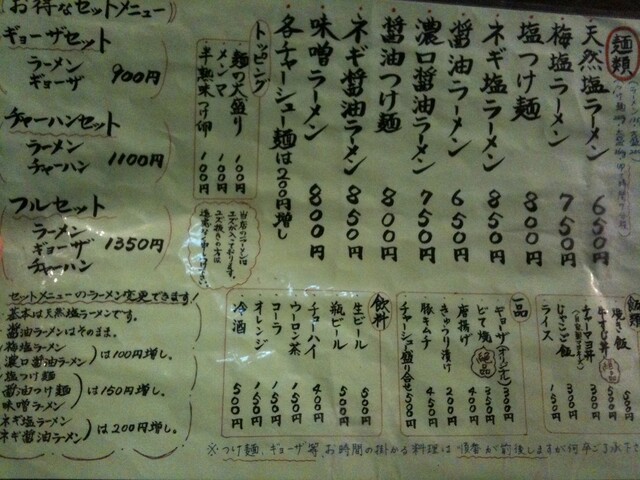 お得なセットメニュー
ギョーザセット
ラーメン
ギョーザ
900円
チャーハンセット
ラーメン
チャーハン
1100円
フルセット
ラーメン
ギョーザ
チャーハン
1350円
セットメニューのラーメン変更できます!
基本は天然塩ラーメンです。
醤油ラーメンはそのまま。
梅塩ラーメン
濃口醤油ラーメン
は100円増し。
塩つけ麺
醤油つけ麺
味噌ラーメン
は150円増し。
ネギ塩ラーメン
ネギ醤油ラーメン
は200円増し。
麺類
天然塩ラーメン 650円
梅塩ラーメン 750円
塩つけ麺 800円
ネギ塩ラーメン 850円
醤油ラーメン 650円
濃口醤油ラーメン 750円
醤油つけ麺 800円
ネギ醤油ラーメン 850円
味噌ラーメン 800円
各チャーシュー麺は200円増し
トッピング
麺の大盛り 100円
メンマ 100円
半熟味つけ卵 100円
当店のラーメンには
ユズが入っております。
ユズ抜きの方は
飯類
焼き飯 500円
牛すじ丼 絶品 500円
チャーマヨ丼 300円
じゃこご飯 300円
ライス 150円
一品
ギョーザ(オリジナル) 300円
どて焼 絶品 300円
唐揚げ 400円
きゅうり漬け 200円
豚キムチ 450円
チャーシュー盛り合せ 500円
飲料
生ビール 500円
瓶ビール 500円
チューハイ 400円
ウーロン茶 150円
コーラ 150円
オレンジ 150円
冷酒 500円
※つけ麺、ギョーザ等、お時間の掛かる料理は順番が前後しますが何卒ご了承下さ